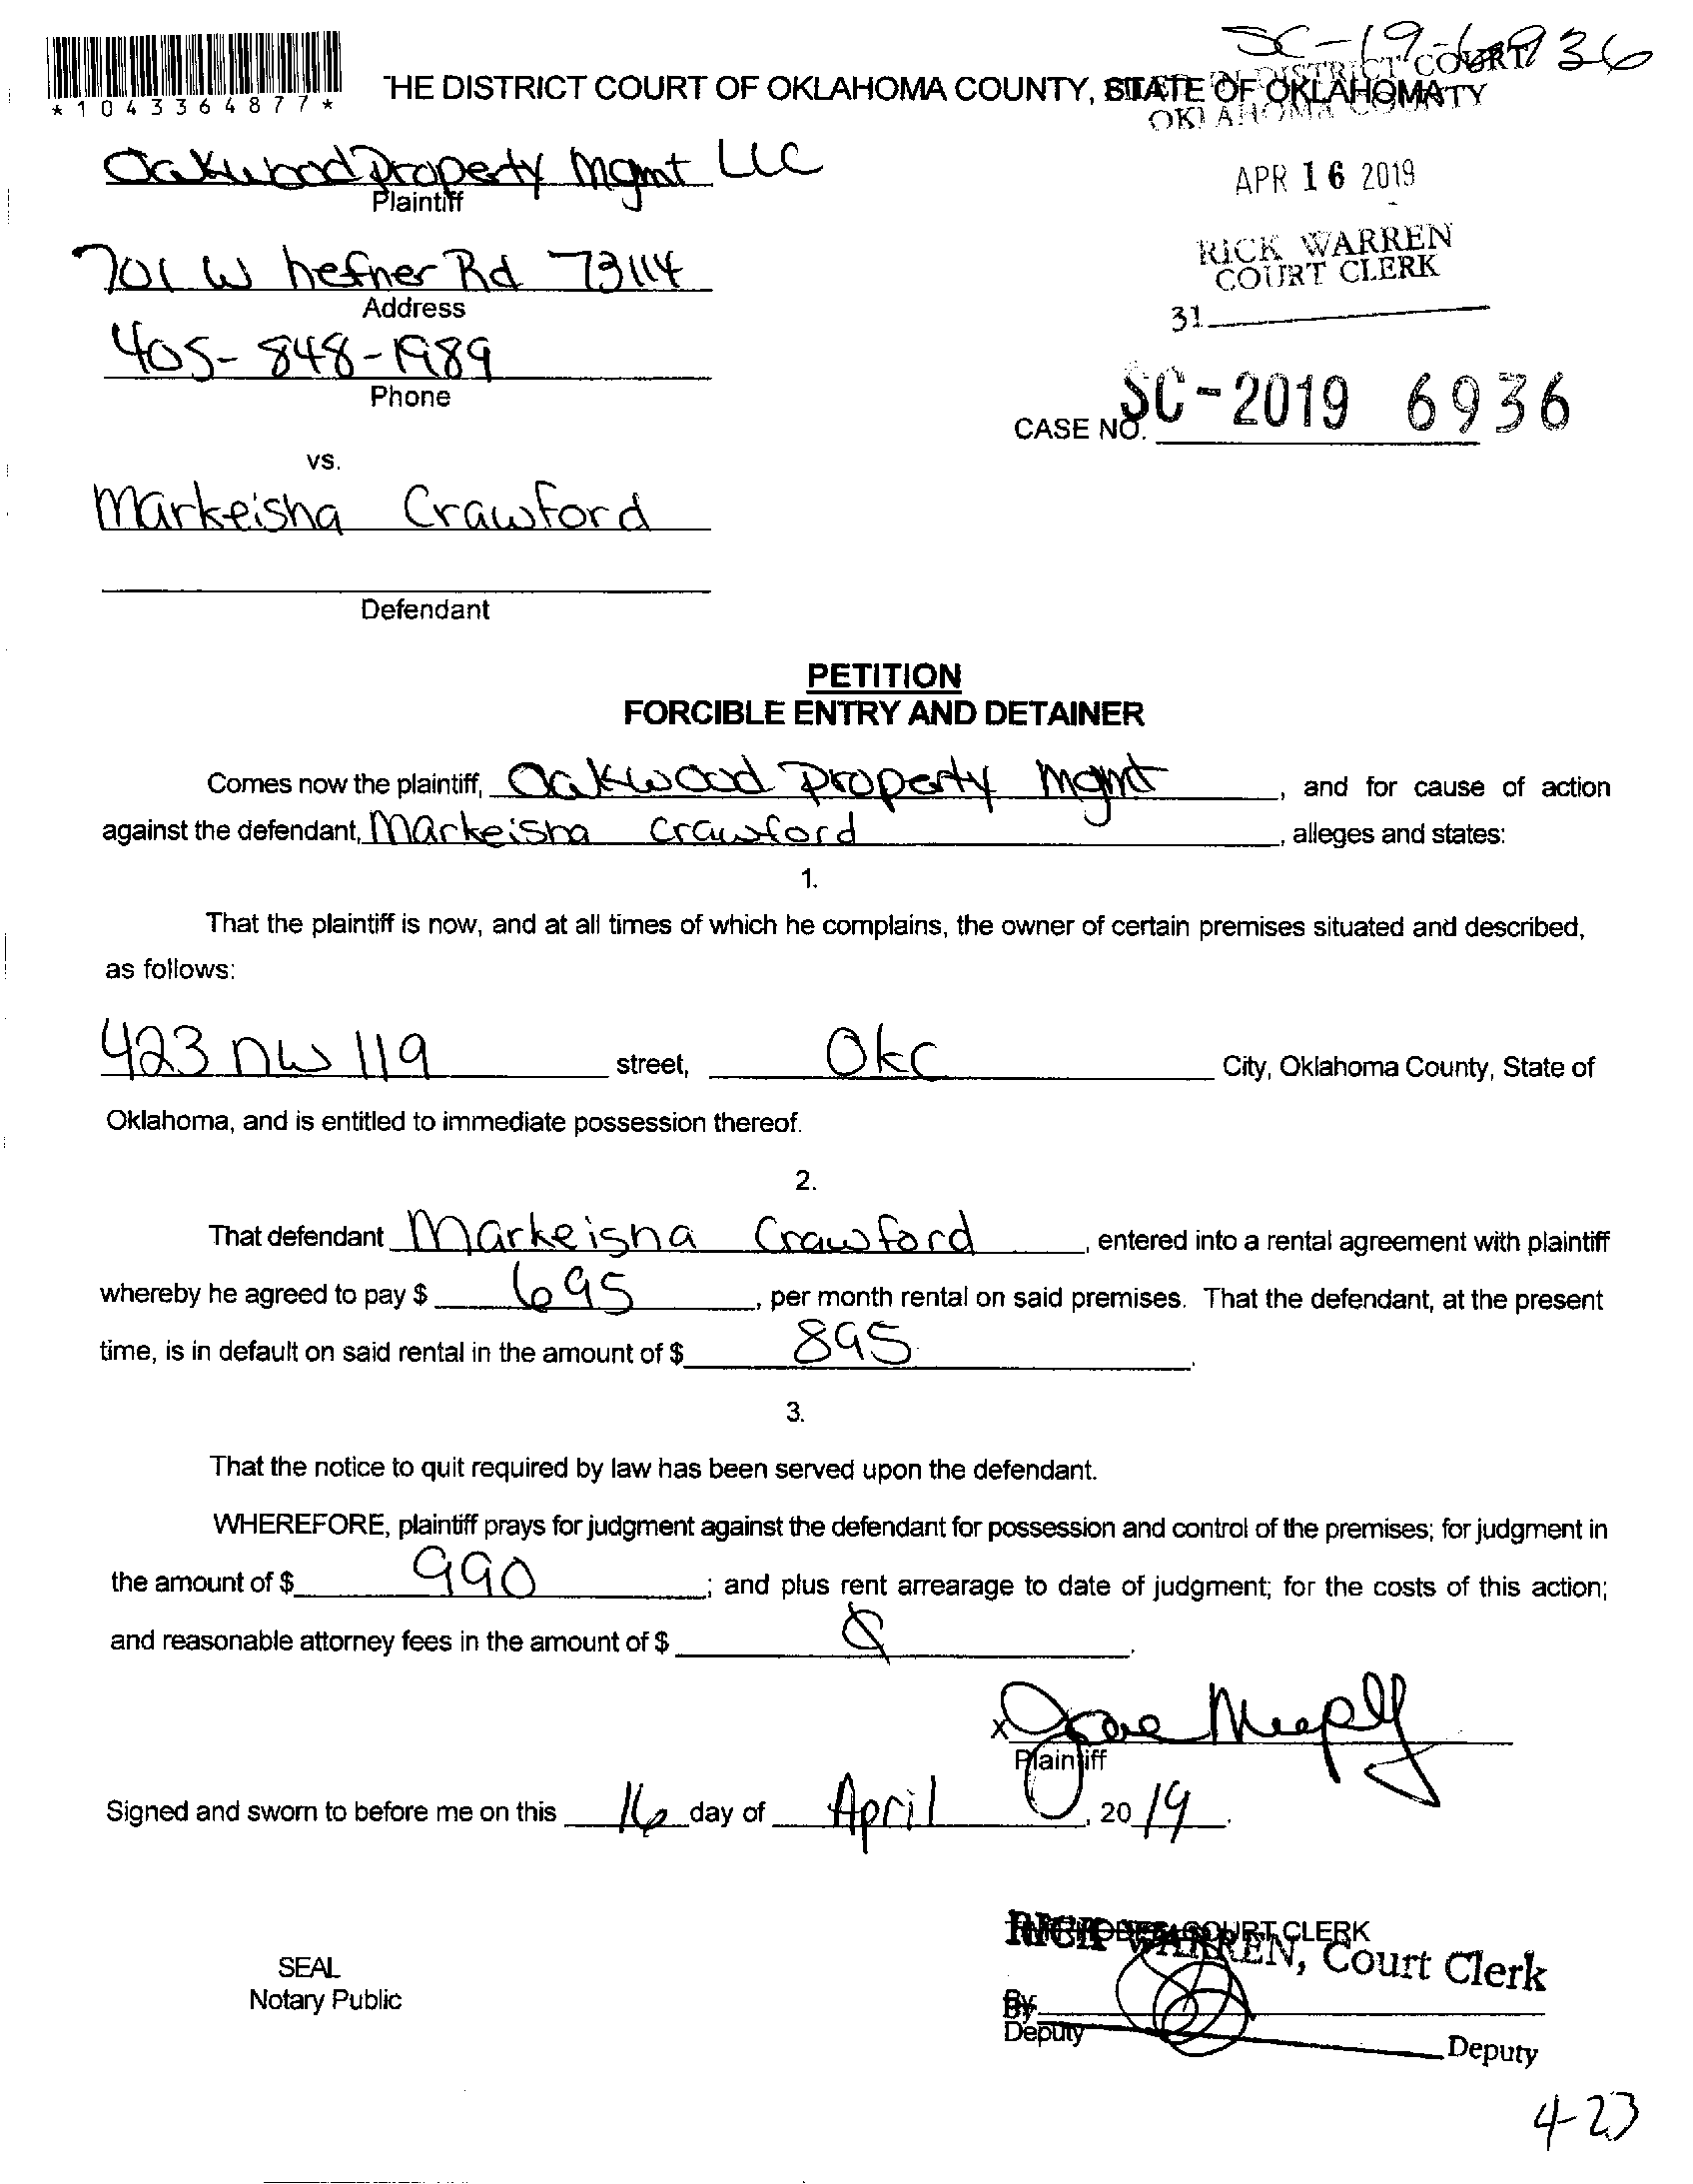 SC-19-6936
*1043364877*
THE DISTRICT COURT OF OKLAHOMA COUNTY, STATE OF OKLAHOMA
IN DISTRICT COURT
OKLAHOMA COUNTY
Oakwood Property Mgmt LLC
Plaintiff
APR 16 2019
701 W hefner Rd 73114
Address
RICK WARREN
COURT CLERK
31
405-848-1989
Phone
CASE NO. SC-2019 6936
vs.
Markeisha Crawford
Defendant
PETITION
FORCIBLE ENTRY AND DETAINER
Comes now the plaintiff, Oakwood Property Mgmt, and for cause of action
against the defendant, Markeisha Crawford, alleges and states:
1.
That the plaintiff is now, and at all times of which he complains, the owner of certain premises situated and described,
as follows:
423 NW 119 street, OKC City, Oklahoma County, State of
Oklahoma, and is entitled to immediate possession thereof.
2.
That defendant Markeisha Crawford, entered into a rental agreement with plaintiff
whereby he agreed to pay $ 695, per month rental on said premises. That the defendant, at the present
time, is in default on said rental in the amount of $ 895.
3.
That the notice to quit required by law has been served upon the defendant.
WHEREFORE, plaintiff prays for judgment against the defendant for possession and control of the premises; for judgment in
the amount of $ 990; and plus rent arrearage to date of judgment; for the costs of this action;
and reasonable attorney fees in the amount of $ .
x
Plaintiff
Signed and sworn to before me on this 16 day of April, 2019.
COURT CLERK
RICK WARREN, Court Clerk
SEAL
Notary Public
By
Deputy
Deputy
4-23